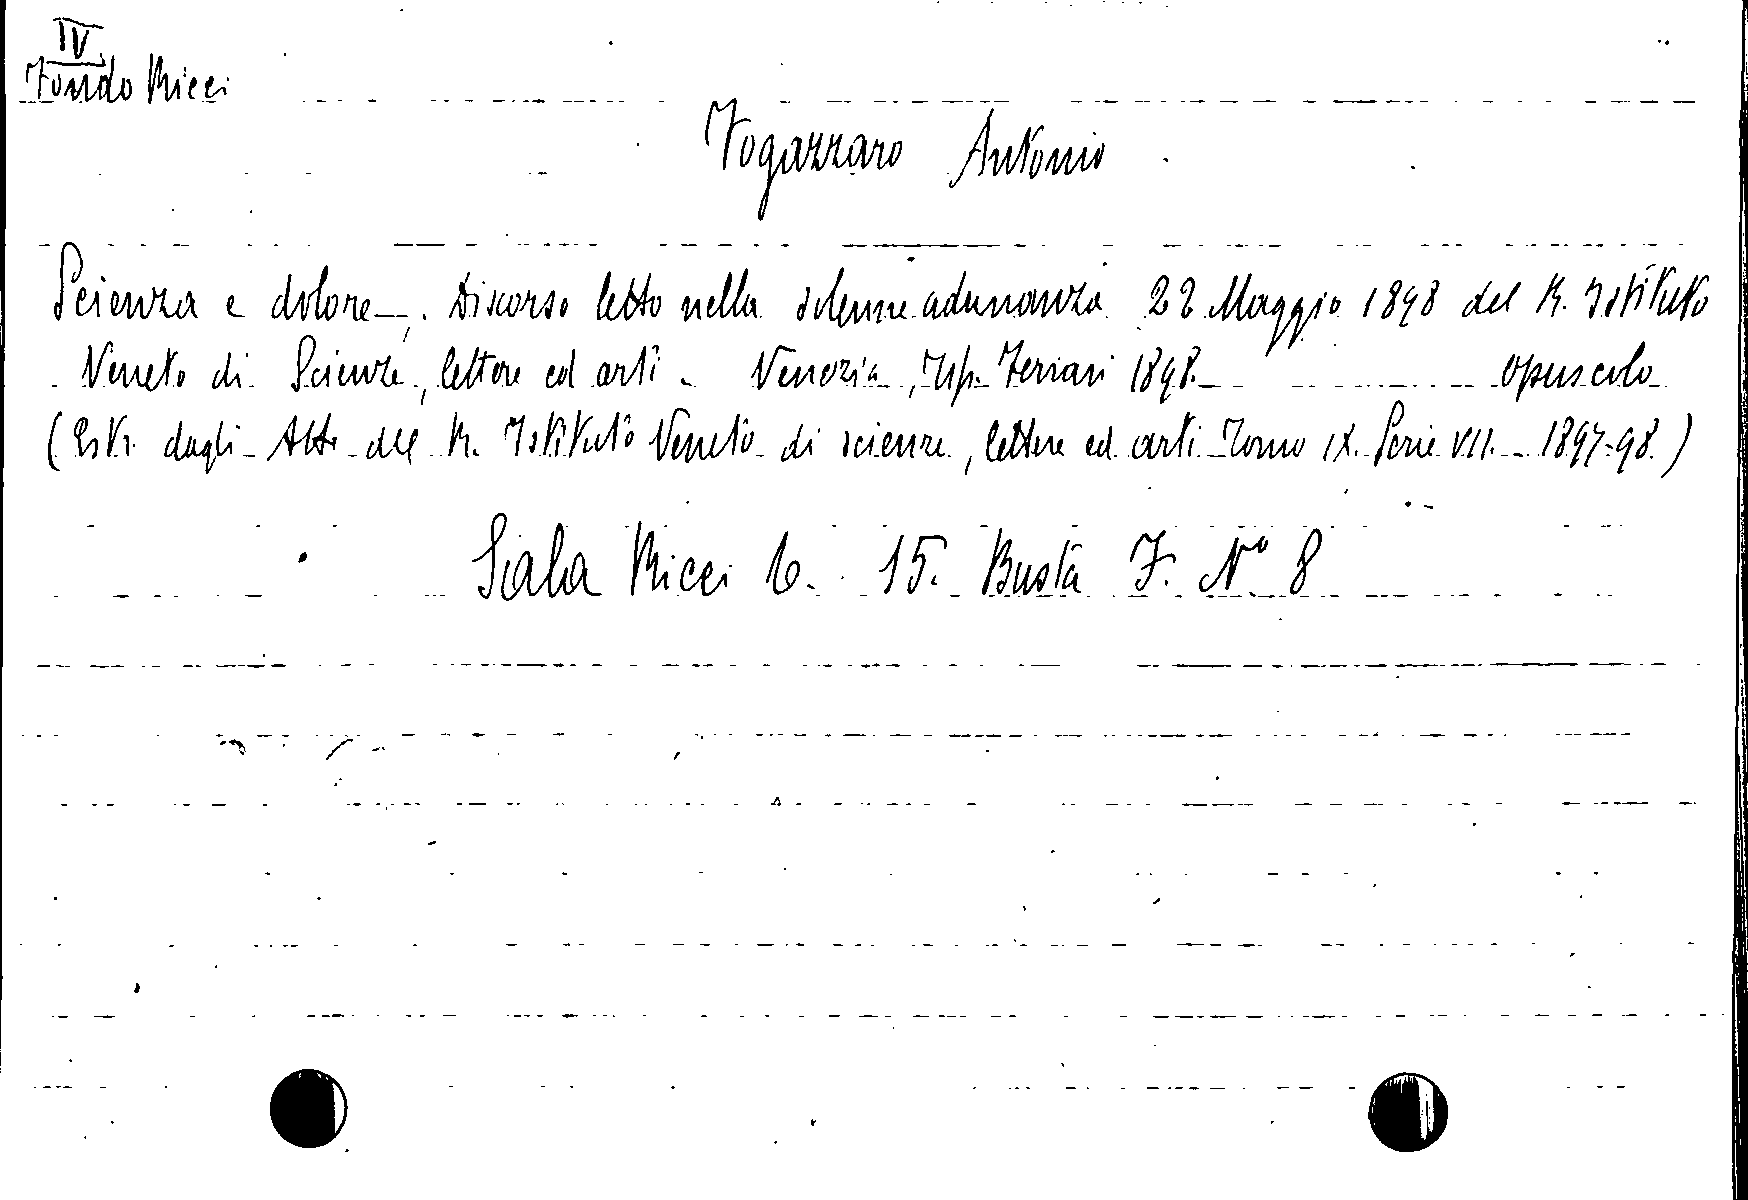 IV
Fondo Ricci
Fogazzaro Antonio
Scienza e dolore. Discorso letto nella solenne adunanza 22 Maggio 1898 del R. Istituto
Veneto di Scienze, lettere ed arti. Venezia, Tip. Ferrari 1898. opuscolo
(Estr. dagli Atti del R. Istituto Veneto di scienze, lettere ed arti Tomo IX. Serie VII. - 1897-98.)
Sala Ricci 6. 15. Busta F. N° 8